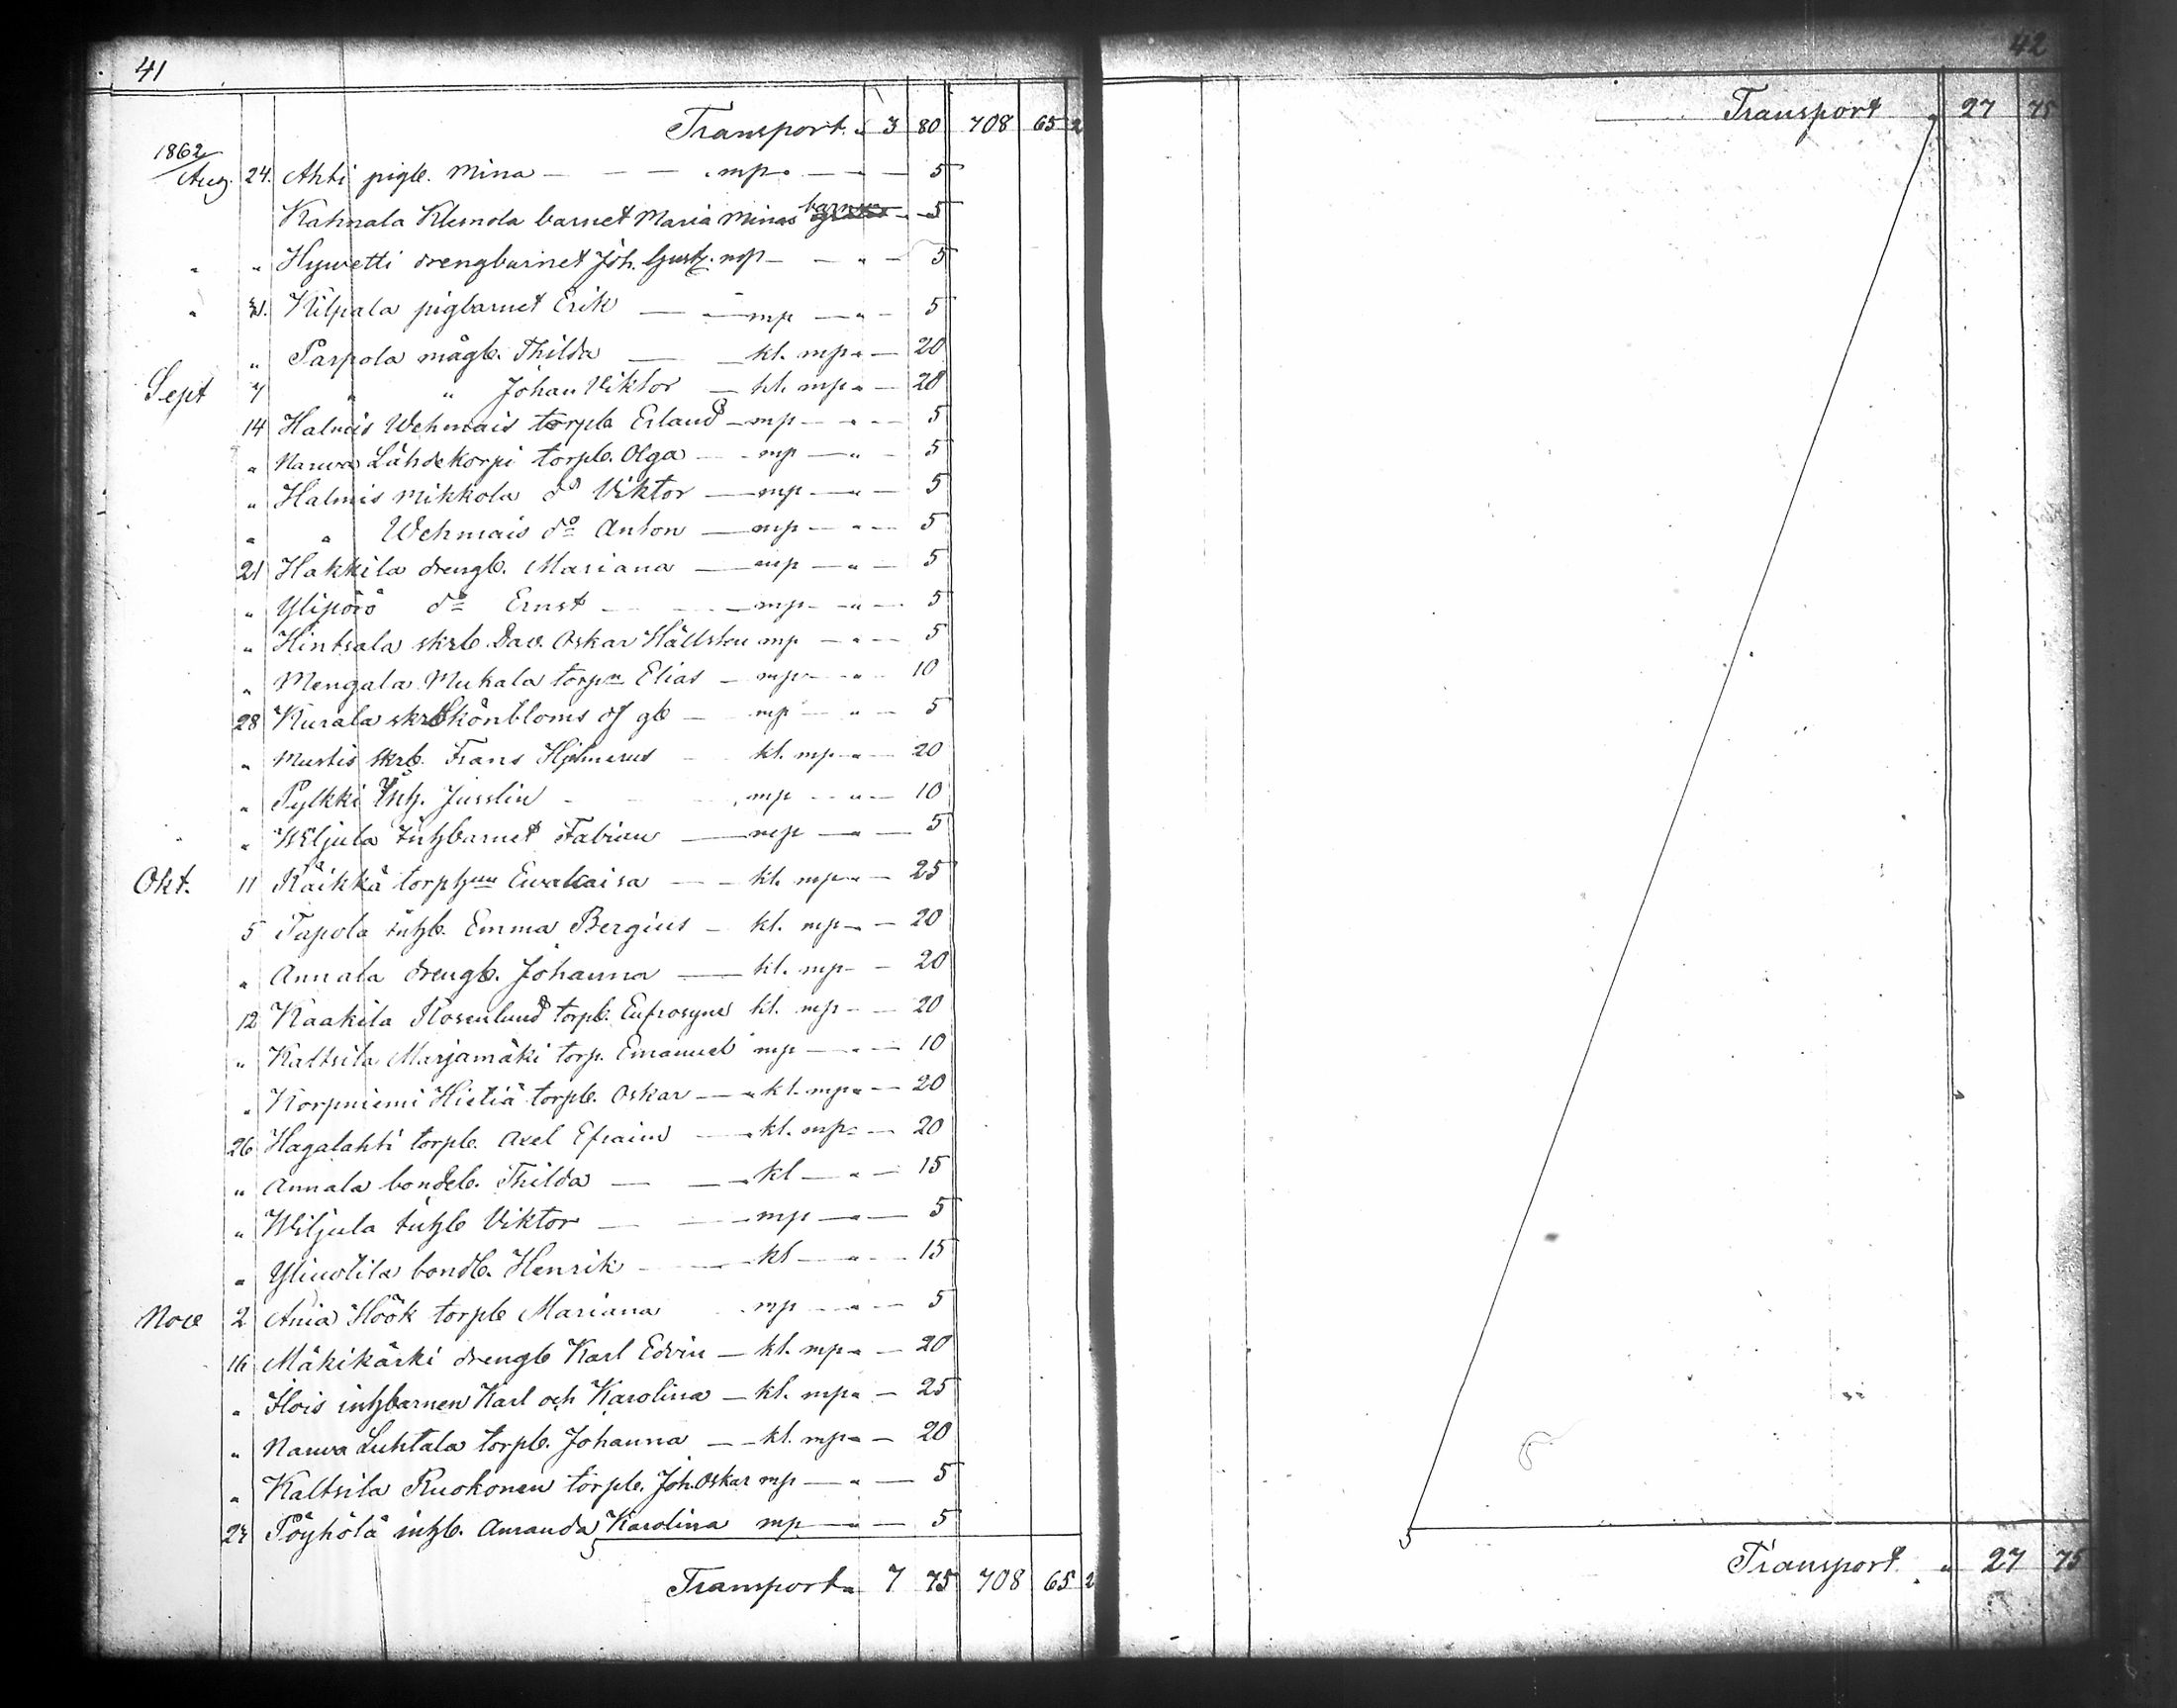 41
Transport " 3 80 708 65 2
1862
Aug. 24. Ahti pigb. Mina — — — mp. — — 5
Kahnala Klemola barnet Maria Minas barn — 5
" " Hywetti drengbarnet Joh. Gust. mp — — " — 5
" 31. Kilpala pigbarnet Erik — — mp — " — 5
" Parpola mågb. Thilda — — kl. mp " — 20
Sept 7 " " Johan Viktor — kl. mp " — 20
14 Halmis Wehmais torpb Erland — mp — " — 5
" Narwa Lähdekorpi torpb. Olga — mp — " — 5
" Halmis Mikkola do Viktor — mp — " — 5
" " Wehmais do Anton — mp — " — 5
21 Hakkila drengb. Mariana — mp — " — 5
" Ylipörö do Ernst — — mp — " — 5
" Hintsala skrb Dav. Oskar Hällsten mp — " — 5
" Mengala Mukala torpn Elias — mp — " — 10
28 Kurala skrb Skönbloms df gb — mp — " — 5
" Mustis skrb. Frans Hjelmerus — kl. mp — " — 20
" Pylkki Inh. Jusslin — mp — " — 10
" Wiljula inhbarnet Fabian — mp — " — 5
Okt. 11 Räikkä torph Ewakaisa — kl. mp " — 25
5 Tapola inhb. Emma Bergius — kl. mp " — 20
" Annala drengb. Johanna — kl. mp — 20
12 Kaakila Rosenlund torpb. Eufrosyne kl. mp — 20
" Kaltsila Marjamäki torp. Emanuel mp — " — 10
" Korpniemi Hietiä torpb. Oskar — " kl. mp " — 20
26 Hagalahti torpb. Axel Efraim — kl. mp " — 20
" Annala bondeb. Thilda — — kl — " — 15
" Wiljula inhb Viktor — — mp — " — 5
" Ylinotila bondb. Henrik — — kl — " — 15
Nov 2 Ania Höök torpb Mariana mp — " — 5
16 Mäkikärki drengb Karl Edvin — kl. mp " — 20
" Ilois inhbarnen Karl och Karolina — kl. mp " — 25
" Narwa Luhtala torpb. Johanna — kl. mp " — 20
" Kaltsila Ruokonen torpb. Joh. Oskar mp — " — 5
23 Pöyhölä inhb. Amanda Karolina mp — " — 5
Transport " 7 75 708 65 2
42
Transport " 27 75
Transport " 27 75